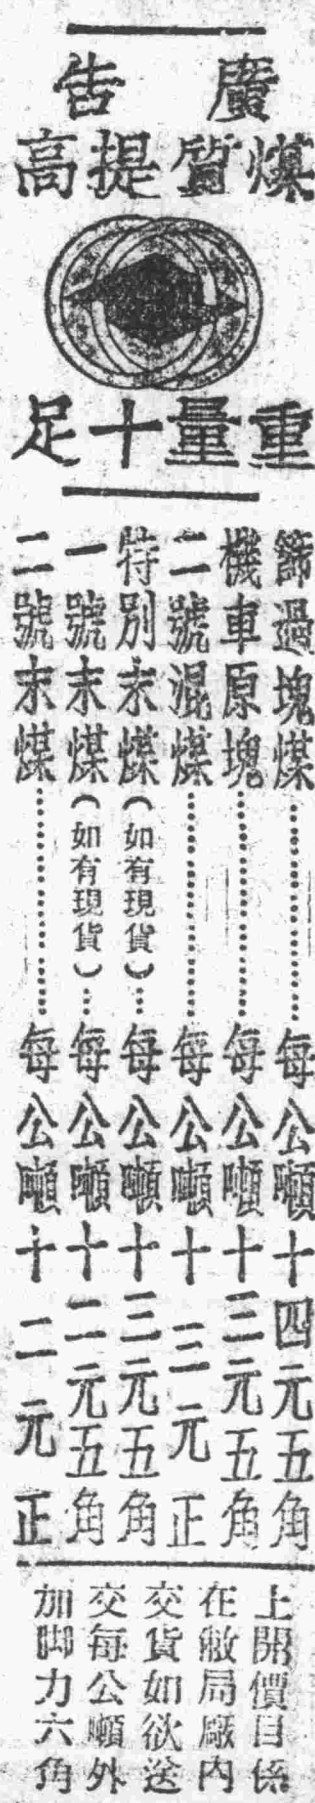 廣告
煤質提高
重量十足
篩過塊煤……每公噸十四元五角
機車原塊……每公噸十三元五角
二號混煤……每公噸十三元正
特別末煤(如有現貨)…每公噸十三元五角
一號末煤(如有現貨)…每公噸十二元五角
二號末煤……每公噸十二元正
上開價目係
在敝局廠內
交貨如欲送
交每公噸外
加脚力六角